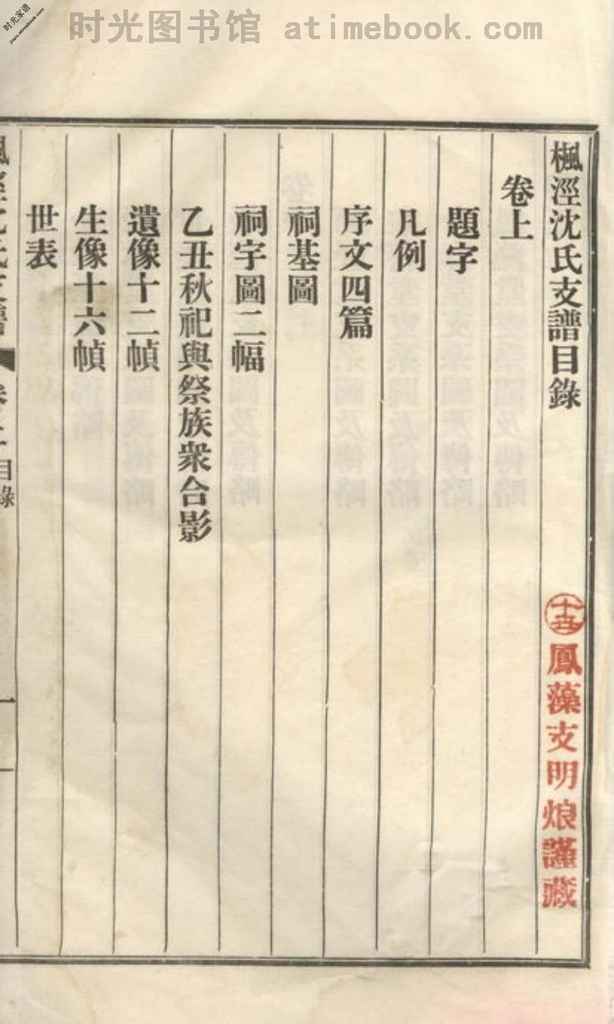 时光图书馆 atimebook.com
时光家谱
www.atimebook.com
楓涇沈氏支譜目錄
十五世
鳳藻支明烺謹藏
卷上
題字
凡例
序文四篇
祠基圖
祠宇圖二幅
乙丑秋祀與祭族衆合影
遺像十二幀
生像十六幀
世表
楓涇沈氏支譜 卷上 目錄 一